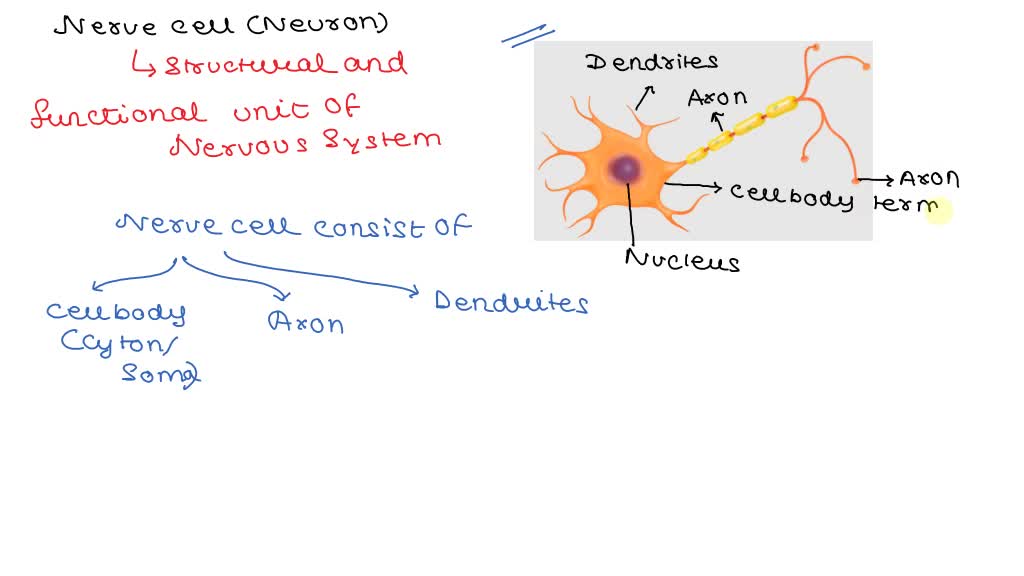 Nerve cell (Neuron)
↳ Structural and
functional unit of
Nervous System
Nerve cell consist of
Cellbody
(Cyton/
Soma)
Axon
Dendrites
Dendrites
Axon
Cellbody
Axon
term
Nucleus